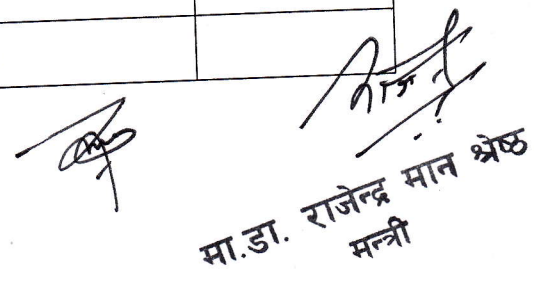 मा.डा. राजेन्द्र मान श्रेष्ठ
मन्त्री